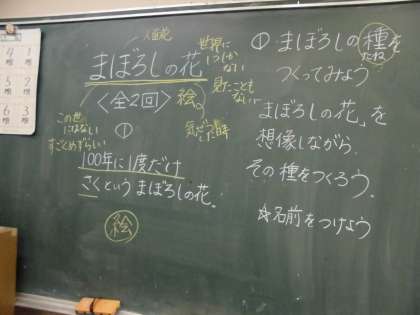 まぼろしの花
世界に
1つしか
ない
見たことも
ない
〈全2回〉
絵
この世
にはない
①
すごくめずらい
100年に1度だけ
さくという まぼろしの花。
絵
① まぼろしの種を
たね
つくってみよう
まぼろしの花」を
想像しながら
その種をつくろう。
☆名前をつけよう
4
1
5
2
6
3